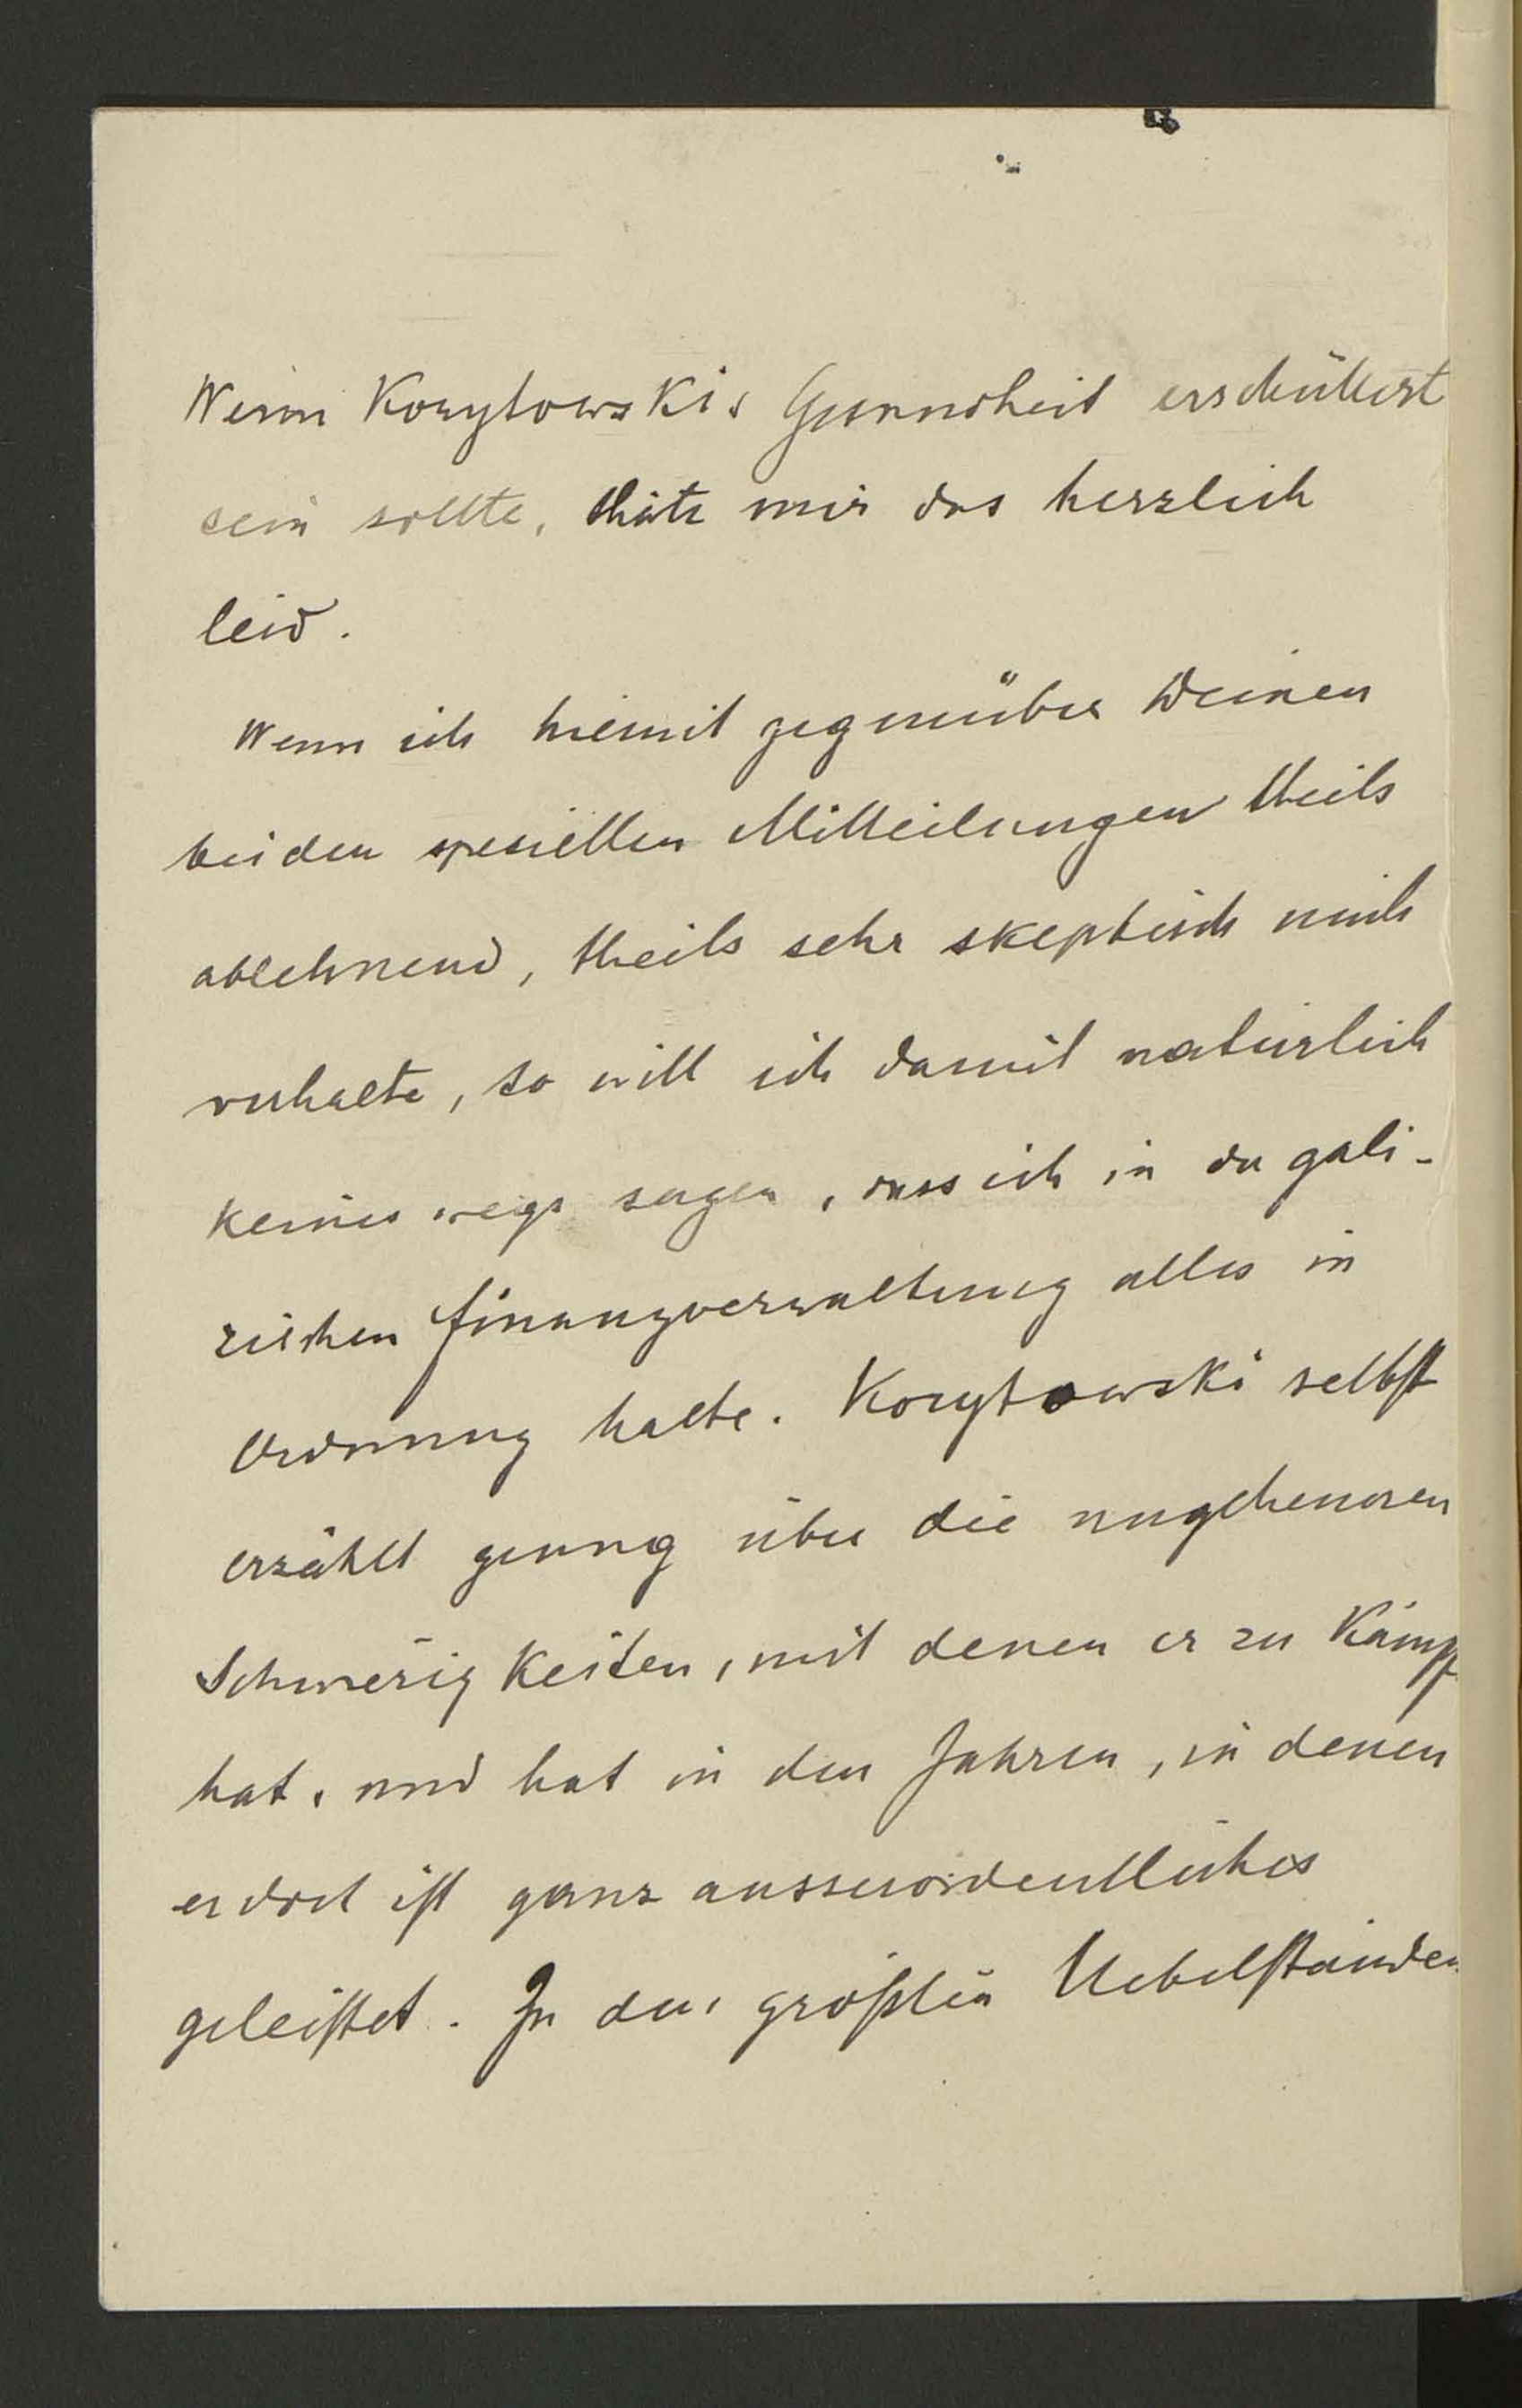 Wenn Korytowskis Gesundheit erschüttert
sein sollte, thäte mir das herzlich
leid.
Wenn ich hiemit gegenüber Deinen
beiden speziellen Mitteilungen theils
ablehnend, theils sehr skeptisch mich
verhalte, so will ich damit natürlich
keineswegs sagen, dass ich in der gali-
zischen Finanzverwaltung alles in
Ordnung halte. Korytowski selbst
erzählt genug über die ungeheuren
Schwierigkeiten, mit denen er zu kämpf
hat, und hat in den Jahren, in denen
er dort ist ganz ausserordentliches
geleistet. Zu den größten Uebelständen